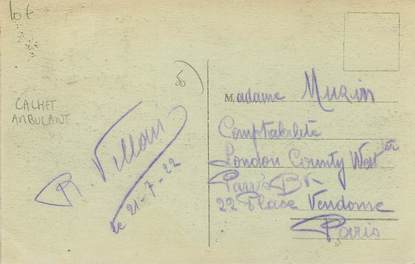 lot
CACHET
AMBULANT
R. Villain
le 21-7-22
Madame Murin
Comptabilité
London County West er
Parr's Bk
22 Place Vendome
Paris